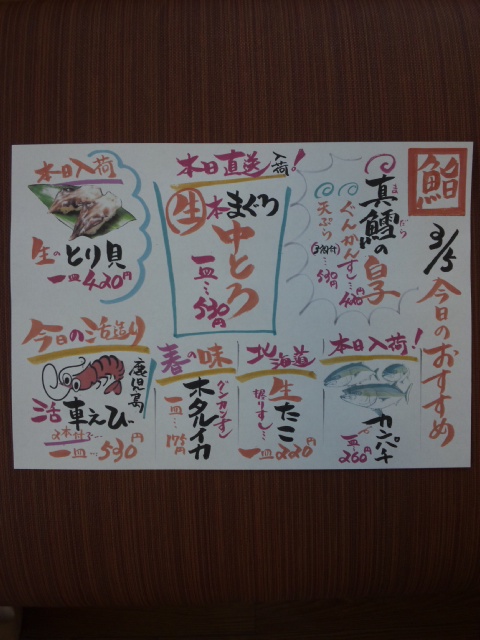 鮨
3/5
今日のおすすめ
真鱈の白子
まだら
ぐんかんすし…420円
天ぷら
…530円
本日直送入荷!
生本まぐろ
中とろ
一皿…530円
本日入荷
生のとり貝
一皿420円
本日入荷!
カンパチ
一皿260円
北海道
生たこ
握りすし…
一皿…220円
春の味
ホタルイカ
グンカンすし
一皿…175円
今日の活造り
鹿児島
活車えび
2本付で…
一皿…530円